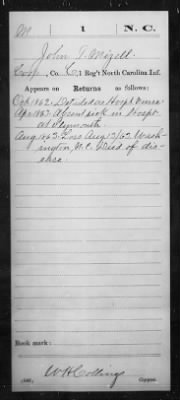 M | 1 | N.C.
John T. Mizell
Corp, Co. C, 1 Reg't North Carolina Inf.
Appears on
Returns as follows:
Oct 1862. Detailed as Hosp'l Nurse
Apr 1863 Absent sick in Hospt
at Plymouth
Aug 1863. Loss Aug 13/63 Wash-
ington, N.C. Died of dis-
ease.
Book mark:
W H Collings
Copyist.